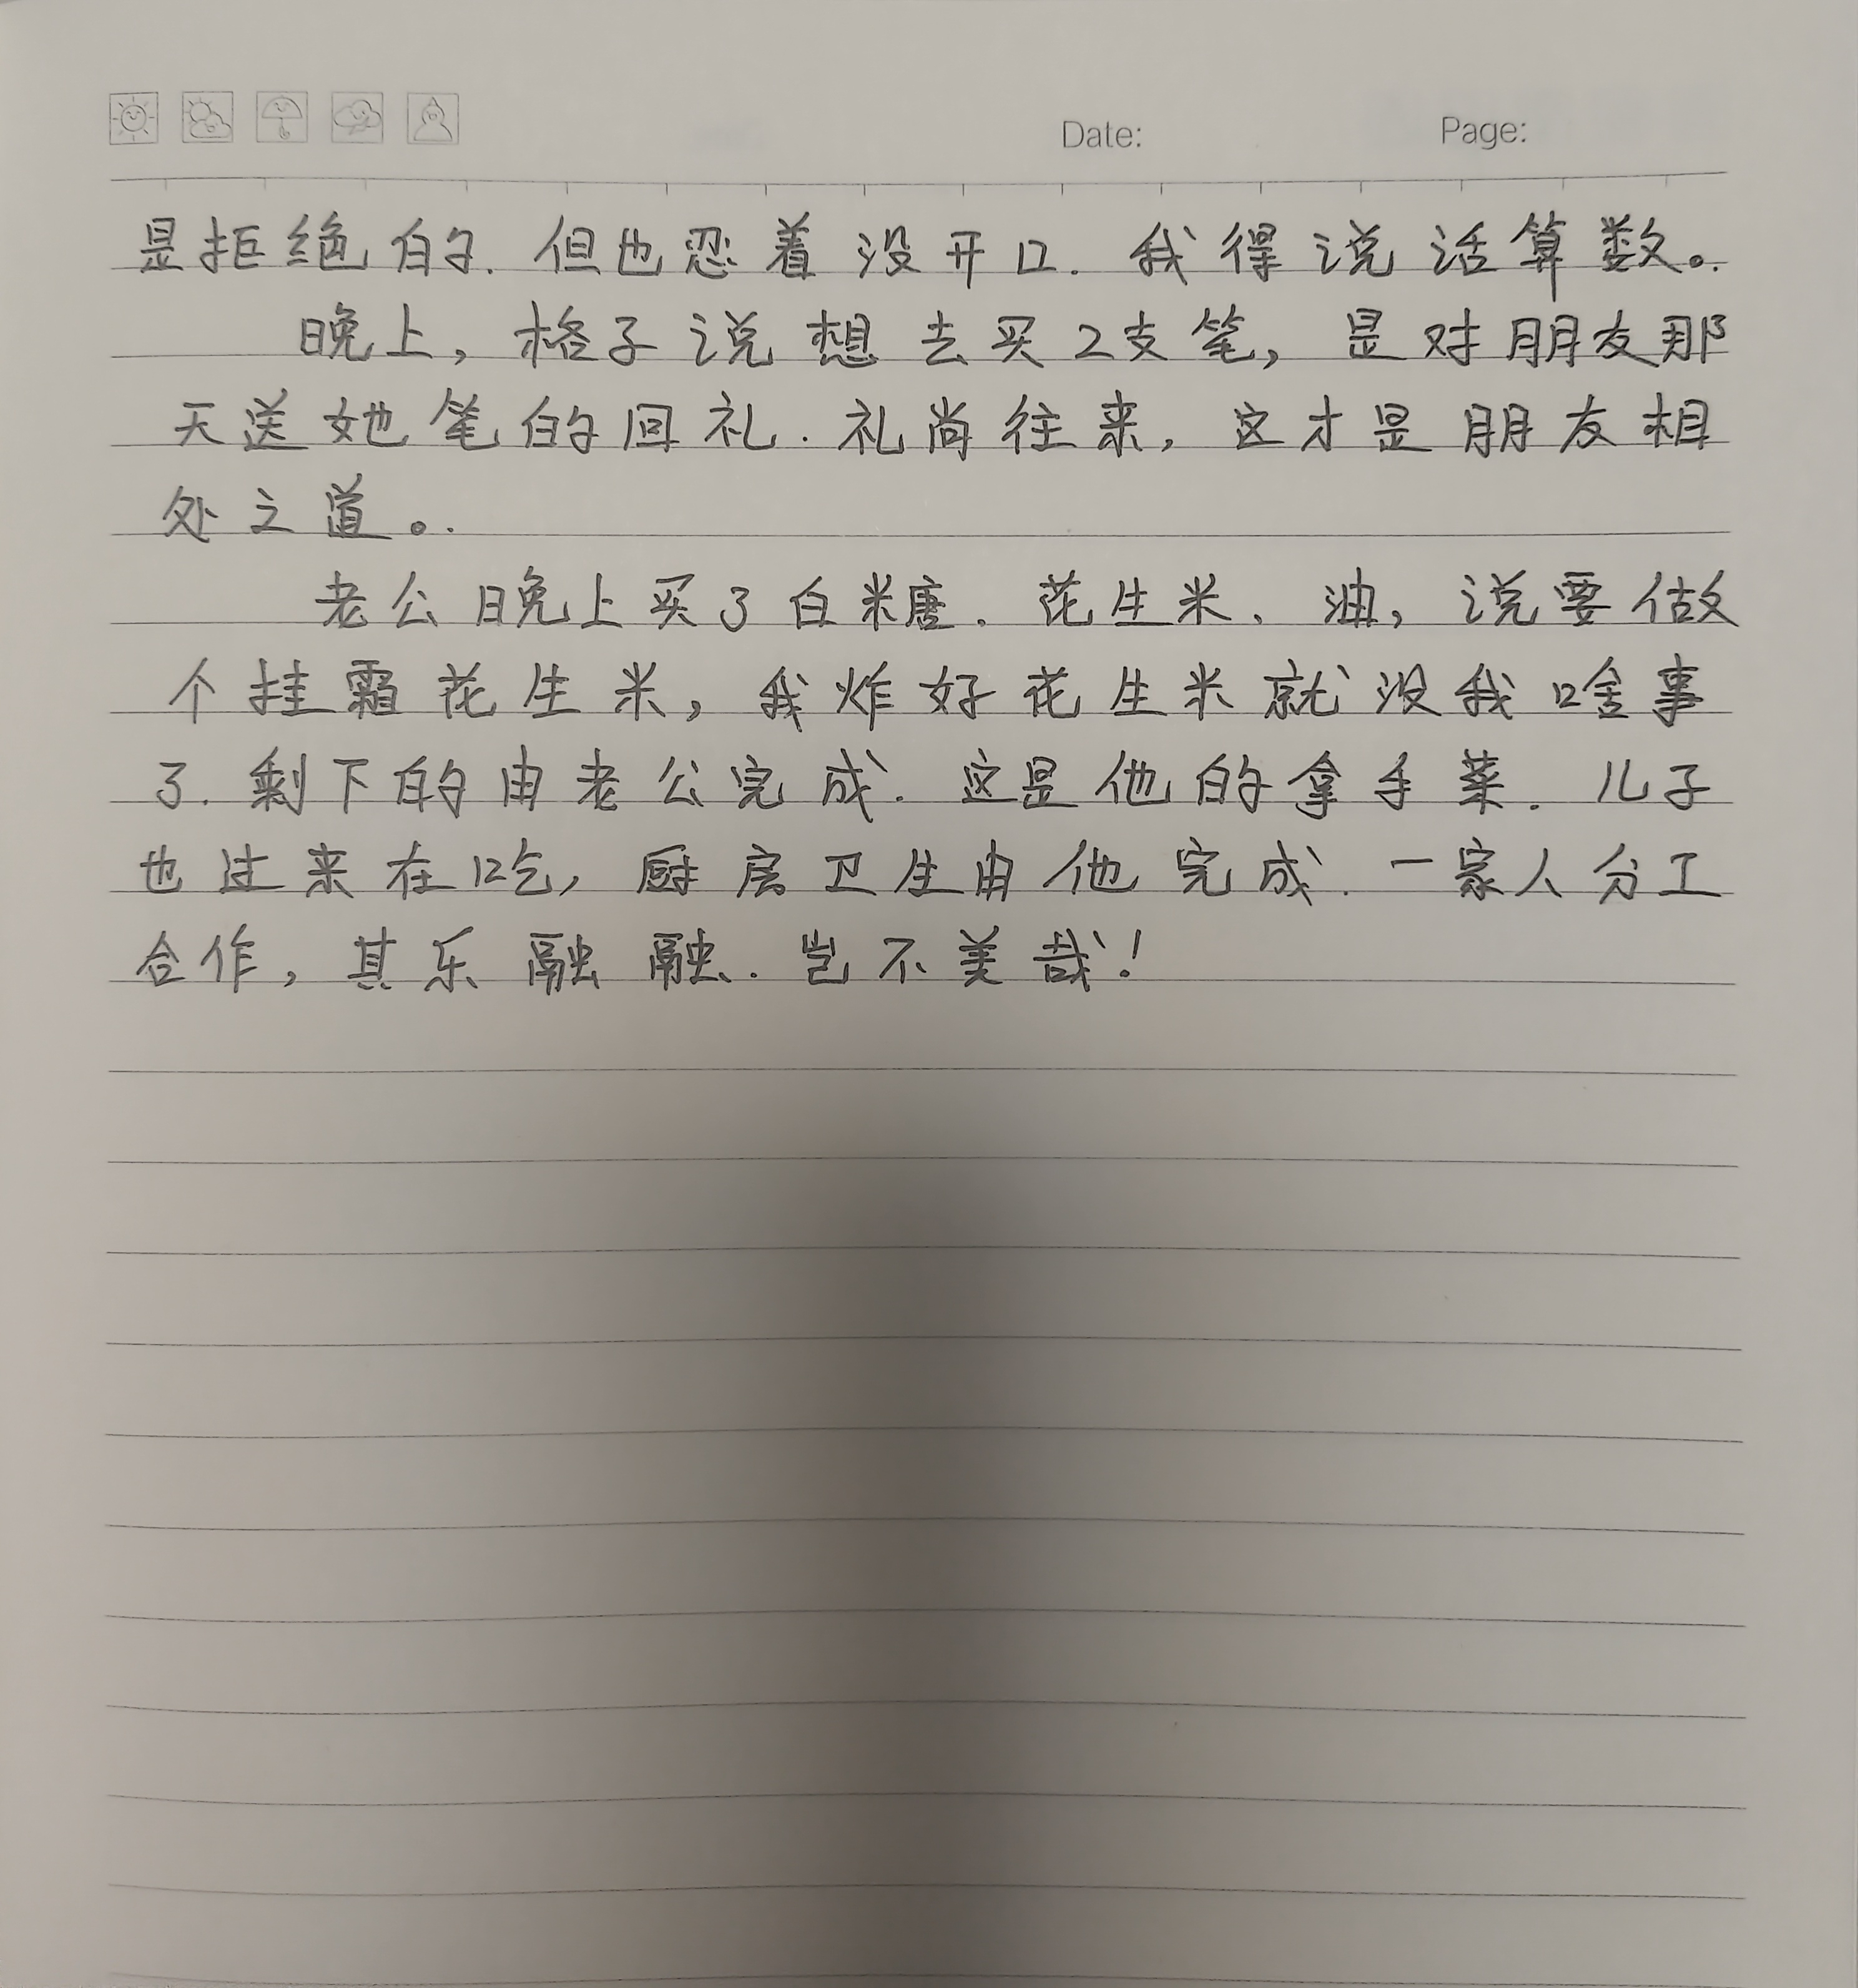 Date: Page:
是拒绝的.但也忍着没开口.我得说话算数。.
晚上，格子说想去买2支笔，是对朋友那
天送她笔的回礼.礼尚往来，这才是朋友相
处之道。.
老公晚上买了白糖.花生米、油，说要做
个挂霜花生米，我炸好花生米就没我啥事
了.剩下的由老公完成.这是他的拿手菜.儿子
也过来在吃，厨房卫生由他完成.一家人分工
合作，其乐融融.岂不美哉！